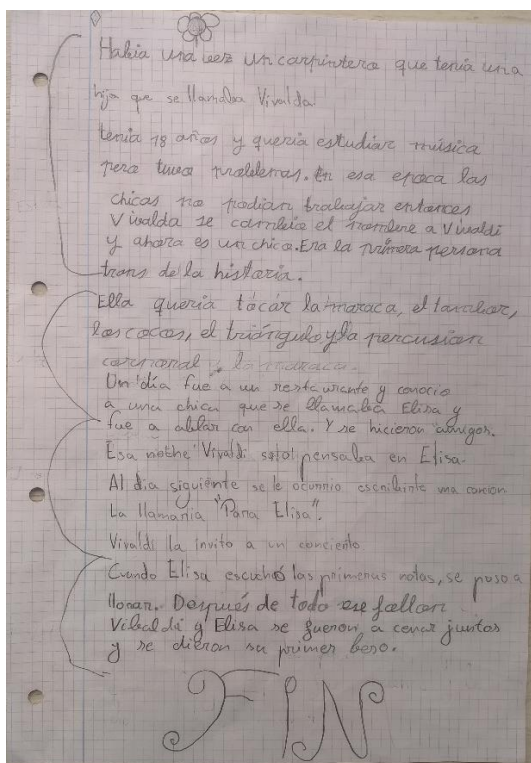 Habia una vez un carpintero que tenia una
hija que se llamaba Vivalda
tenia 18 años y queria estudiar música
pero tuvo problemas. En esa epoca las
chicas no podian trabajar entonces
Vivalda se cambio el nombre a Vivaldi
y ahora es un chico. Era la primera persona
trans de la historia.
Ella queria tócar la maraca, el
los cocos, el triángulo y la percusion
corporal y la maraca.
Un día fue a un restaurante y conocio
a una chica que se llamaba Elisa y
fue a ablar con ella. Y se hicieron amigos.
Esa noche Vivaldi solo pensaba en Elisa.
Al dia siguiente se le ocurrio escribirle una cancion
La llamaria "Para Elisa".
Vivaldi la invito a un concierto
Cuando Elisa escuchó las primeras notas, se puso a
llorar. Después de todo ese
y Elisa se fueron a cenar juntos
y se dieron su primer beso.
FIN